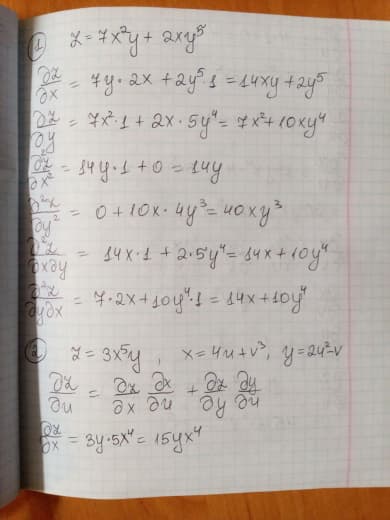 ① z = 7x²y + 2xy⁵
∂z/∂x = 7y · 2x + 2y⁵ · 1 = 14xy + 2y⁵
∂z/∂y = 7x² · 1 + 2x · 5y⁴ = 7x² + 10xy⁴
∂²z/∂x² = 14y · 1 + 0 = 14y
∂²z/∂y² = 0 + 10x · 4y³ = 40xy³
∂²z/∂x∂y = 14x · 1 + 2 · 5y⁴ = 14x + 10y⁴
∂²z/∂y∂x = 7 · 2x + 10y⁴ · 1 = 14x + 10y⁴
② z = 3x⁵y, x = 4u + v³, y = 2u² - v
∂z/∂u = ∂z/∂x ∂x/∂u + ∂z/∂y ∂y/∂u
∂z/∂x = 3y · 5x⁴ = 15yx⁴